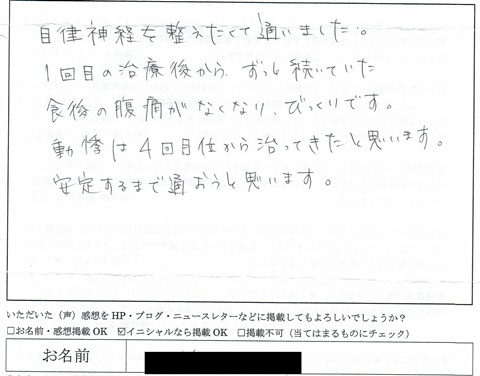 自律神経を整えたくて通いました。
1回目の治療後から、ずっと続いていた
食後の腹痛がなくなり、びっくりです。
動悸は4回目位から治ってきたと思います。
安定するまで通おうと思います。
いただいた（声）感想をHP・ブログ・ニュースレターなどに掲載してもよろしいでしょうか？
□お名前・感想掲載OK ☑イニシャルなら掲載OK □掲載不可（当てはまるものにチェック）
お名前